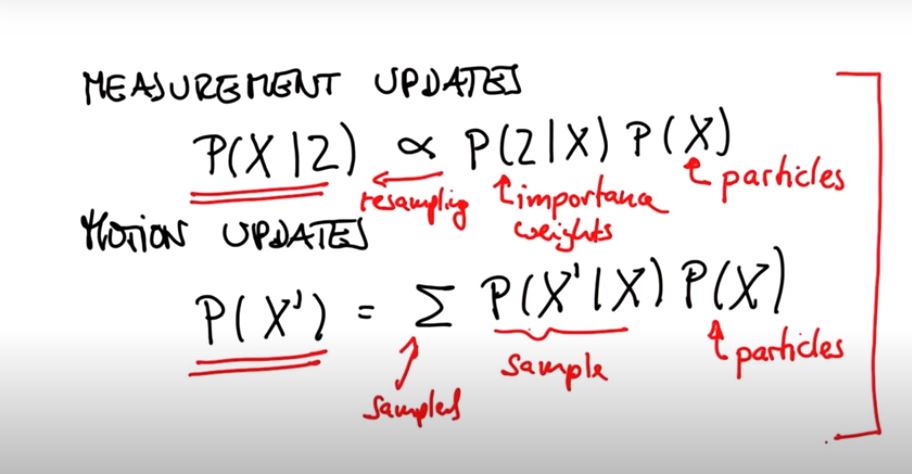 MEASUREMENT UPDATES
P(X|Z) ∝ P(Z|X) P(X)
resampling importance weights particles
MOTION UPDATES
P(X') = Σ P(X'|X) P(X)
samples sample particles